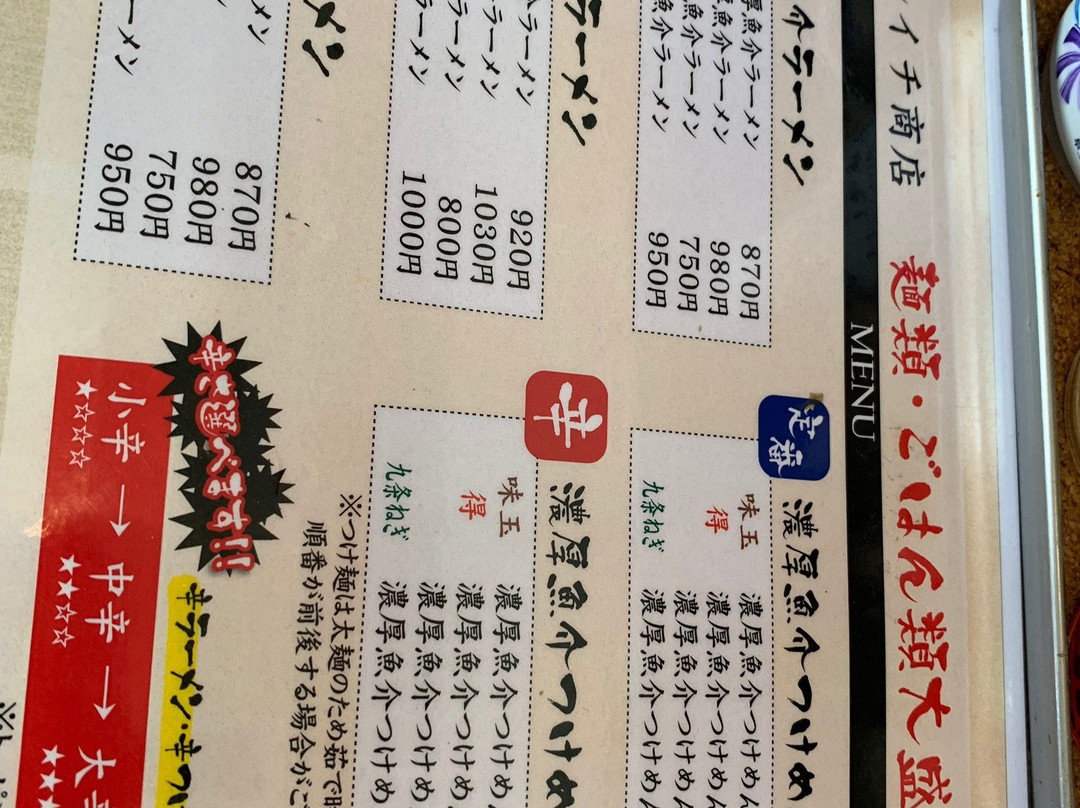 イチ商店
麺類・ごはん類大盛
MENU
介ラーメン
厚魚介ラーメン 870円
魚介ラーメン 980円
魚介ラーメン 750円
魚介ラーメン 950円
ラーメン
ラーメン 920円
ラーメン 1030円
ラーメン 800円
ラーメン 1000円
メン
メン 870円
980円
750円
ーメン 950円
定番
濃厚魚介つけめ
味玉 濃厚魚介つけめん
得 濃厚魚介つけめん
濃厚魚介つけめん
九条ねぎ 濃厚魚介つけめん
辛
濃厚魚介つけめ
味玉 濃厚魚介つけめん
得 濃厚魚介つけめん
濃厚魚介つけめん
九条ねぎ 濃厚魚介つけめん
※つけ麺は太麺のため茹で時
順番が前後する場合がご
辛さ選べます!!
辛ラーメン・辛つ
小辛 → 中辛 → 大辛
★☆☆☆ ★★☆☆ ★★